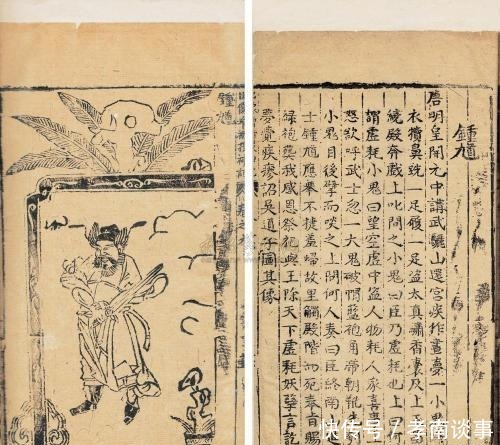 鍾馗
鍾馗
唐明皇開元中講武驪山還宮疾作晝夢一小鬼
衣犢鼻跣一足履一足盗太真繡香囊及上玉
繞殿奔戲上叱問之小鬼曰臣乃虛耗也上曰
謂虛耗小鬼曰望空虛中盗人物耗人家喜事
怒欲呼武士忽一大鬼破帽藍袍角帶朝靴
小鬼刳目後擘而啖之上問何人奏曰臣終南
士鍾馗應舉不捷羞歸故里觸殿階而死奉旨賜
綠袍葬我感恩祭祀與王除天下虛耗妖孽言訖
夢覺疾瘳詔吳道子圖其像
快传号/孝南谈事